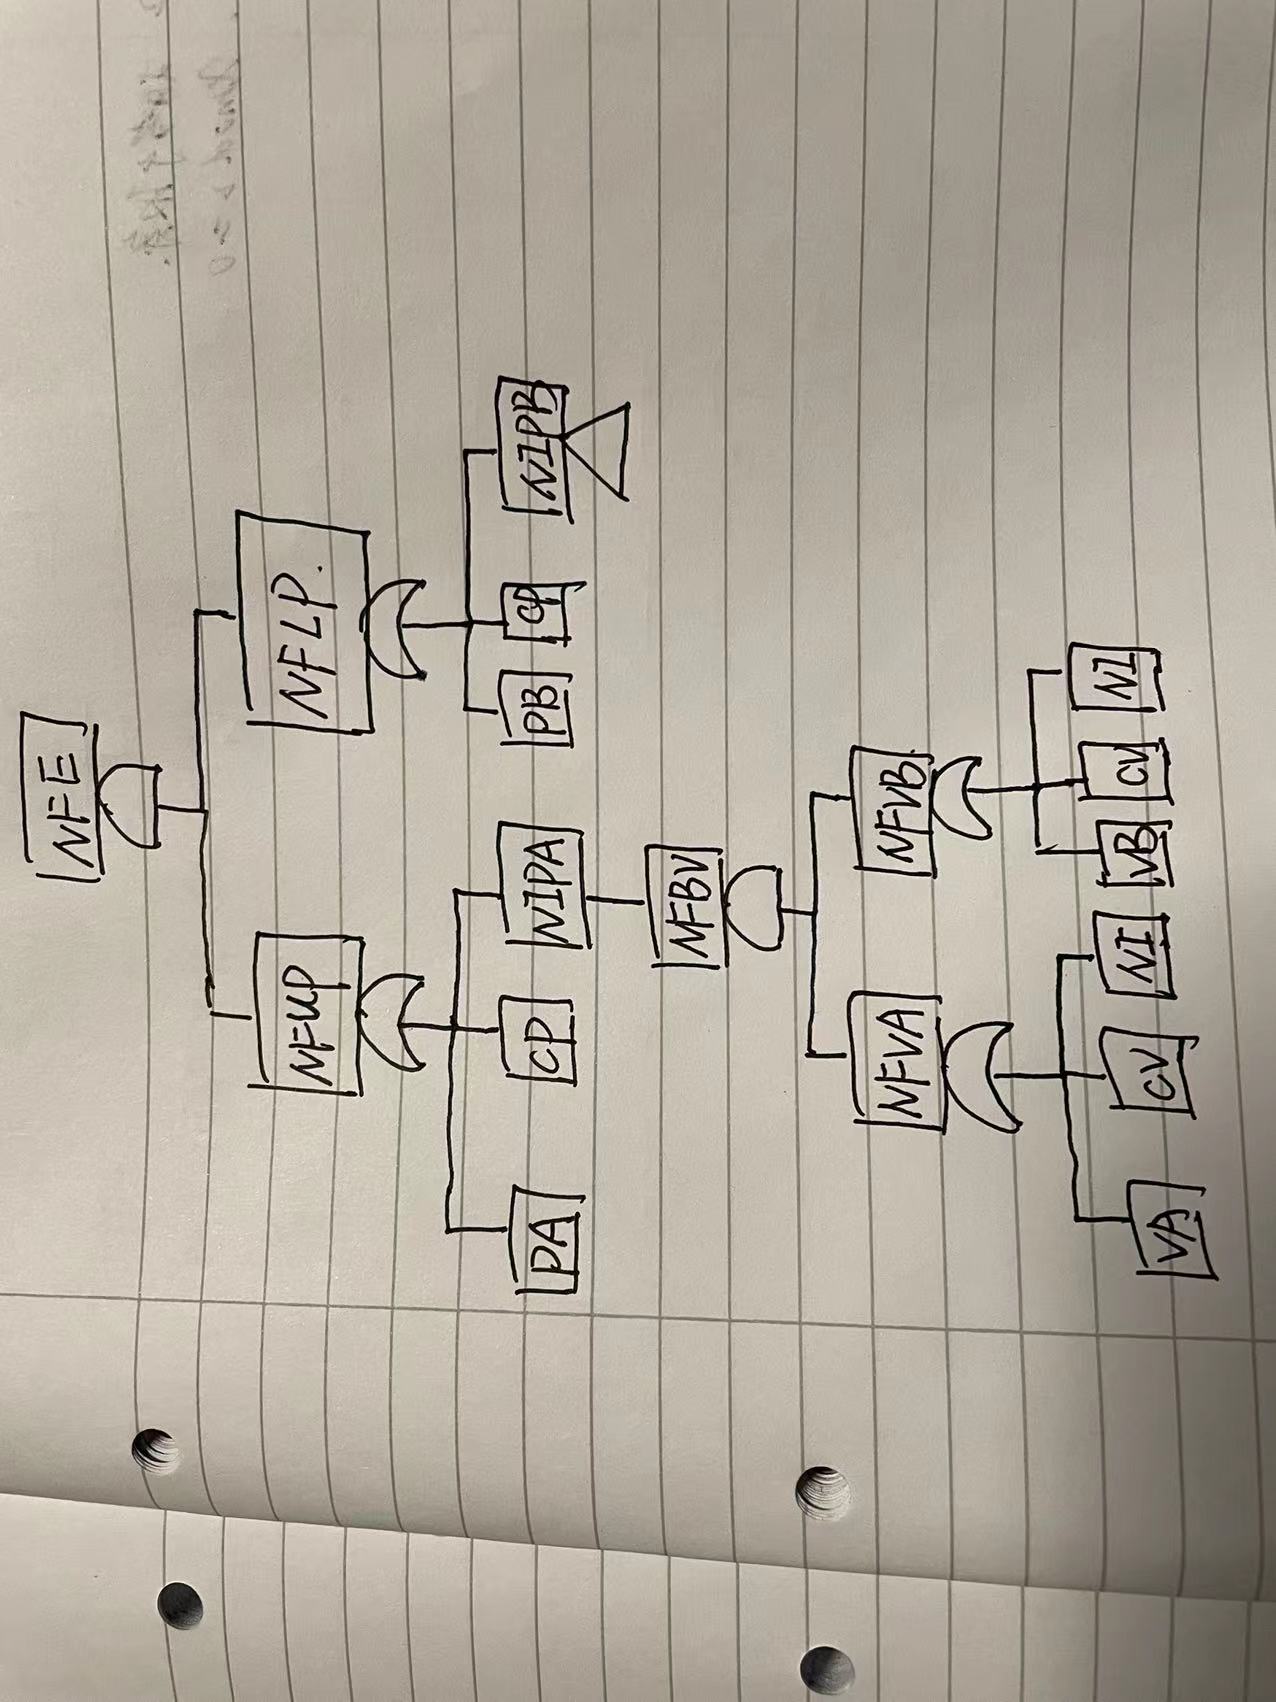 NFE
NFUP
NFLP.
PA
CP
NIPA
PB
CP
NIPB
NFBV
NFVA
NFVB
VA
CV
NI
VB
CV
NI